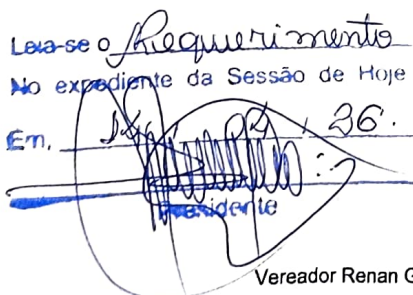 Leia-se o Requerimento
No expediente da Sessão de Hoje
Em, 26.
Presidente
Vereador Renan G